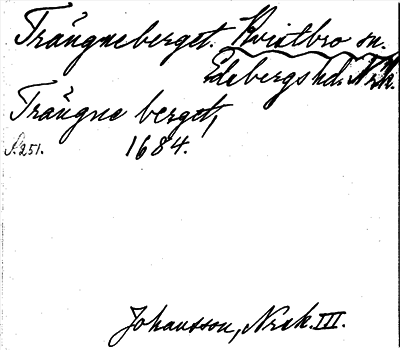 Trängneberget. Kvistbro sn.
Edsbergs hd. Nrk.
Trängne berget,
S. 251. 1684.
Johansson, Nrsk. III.